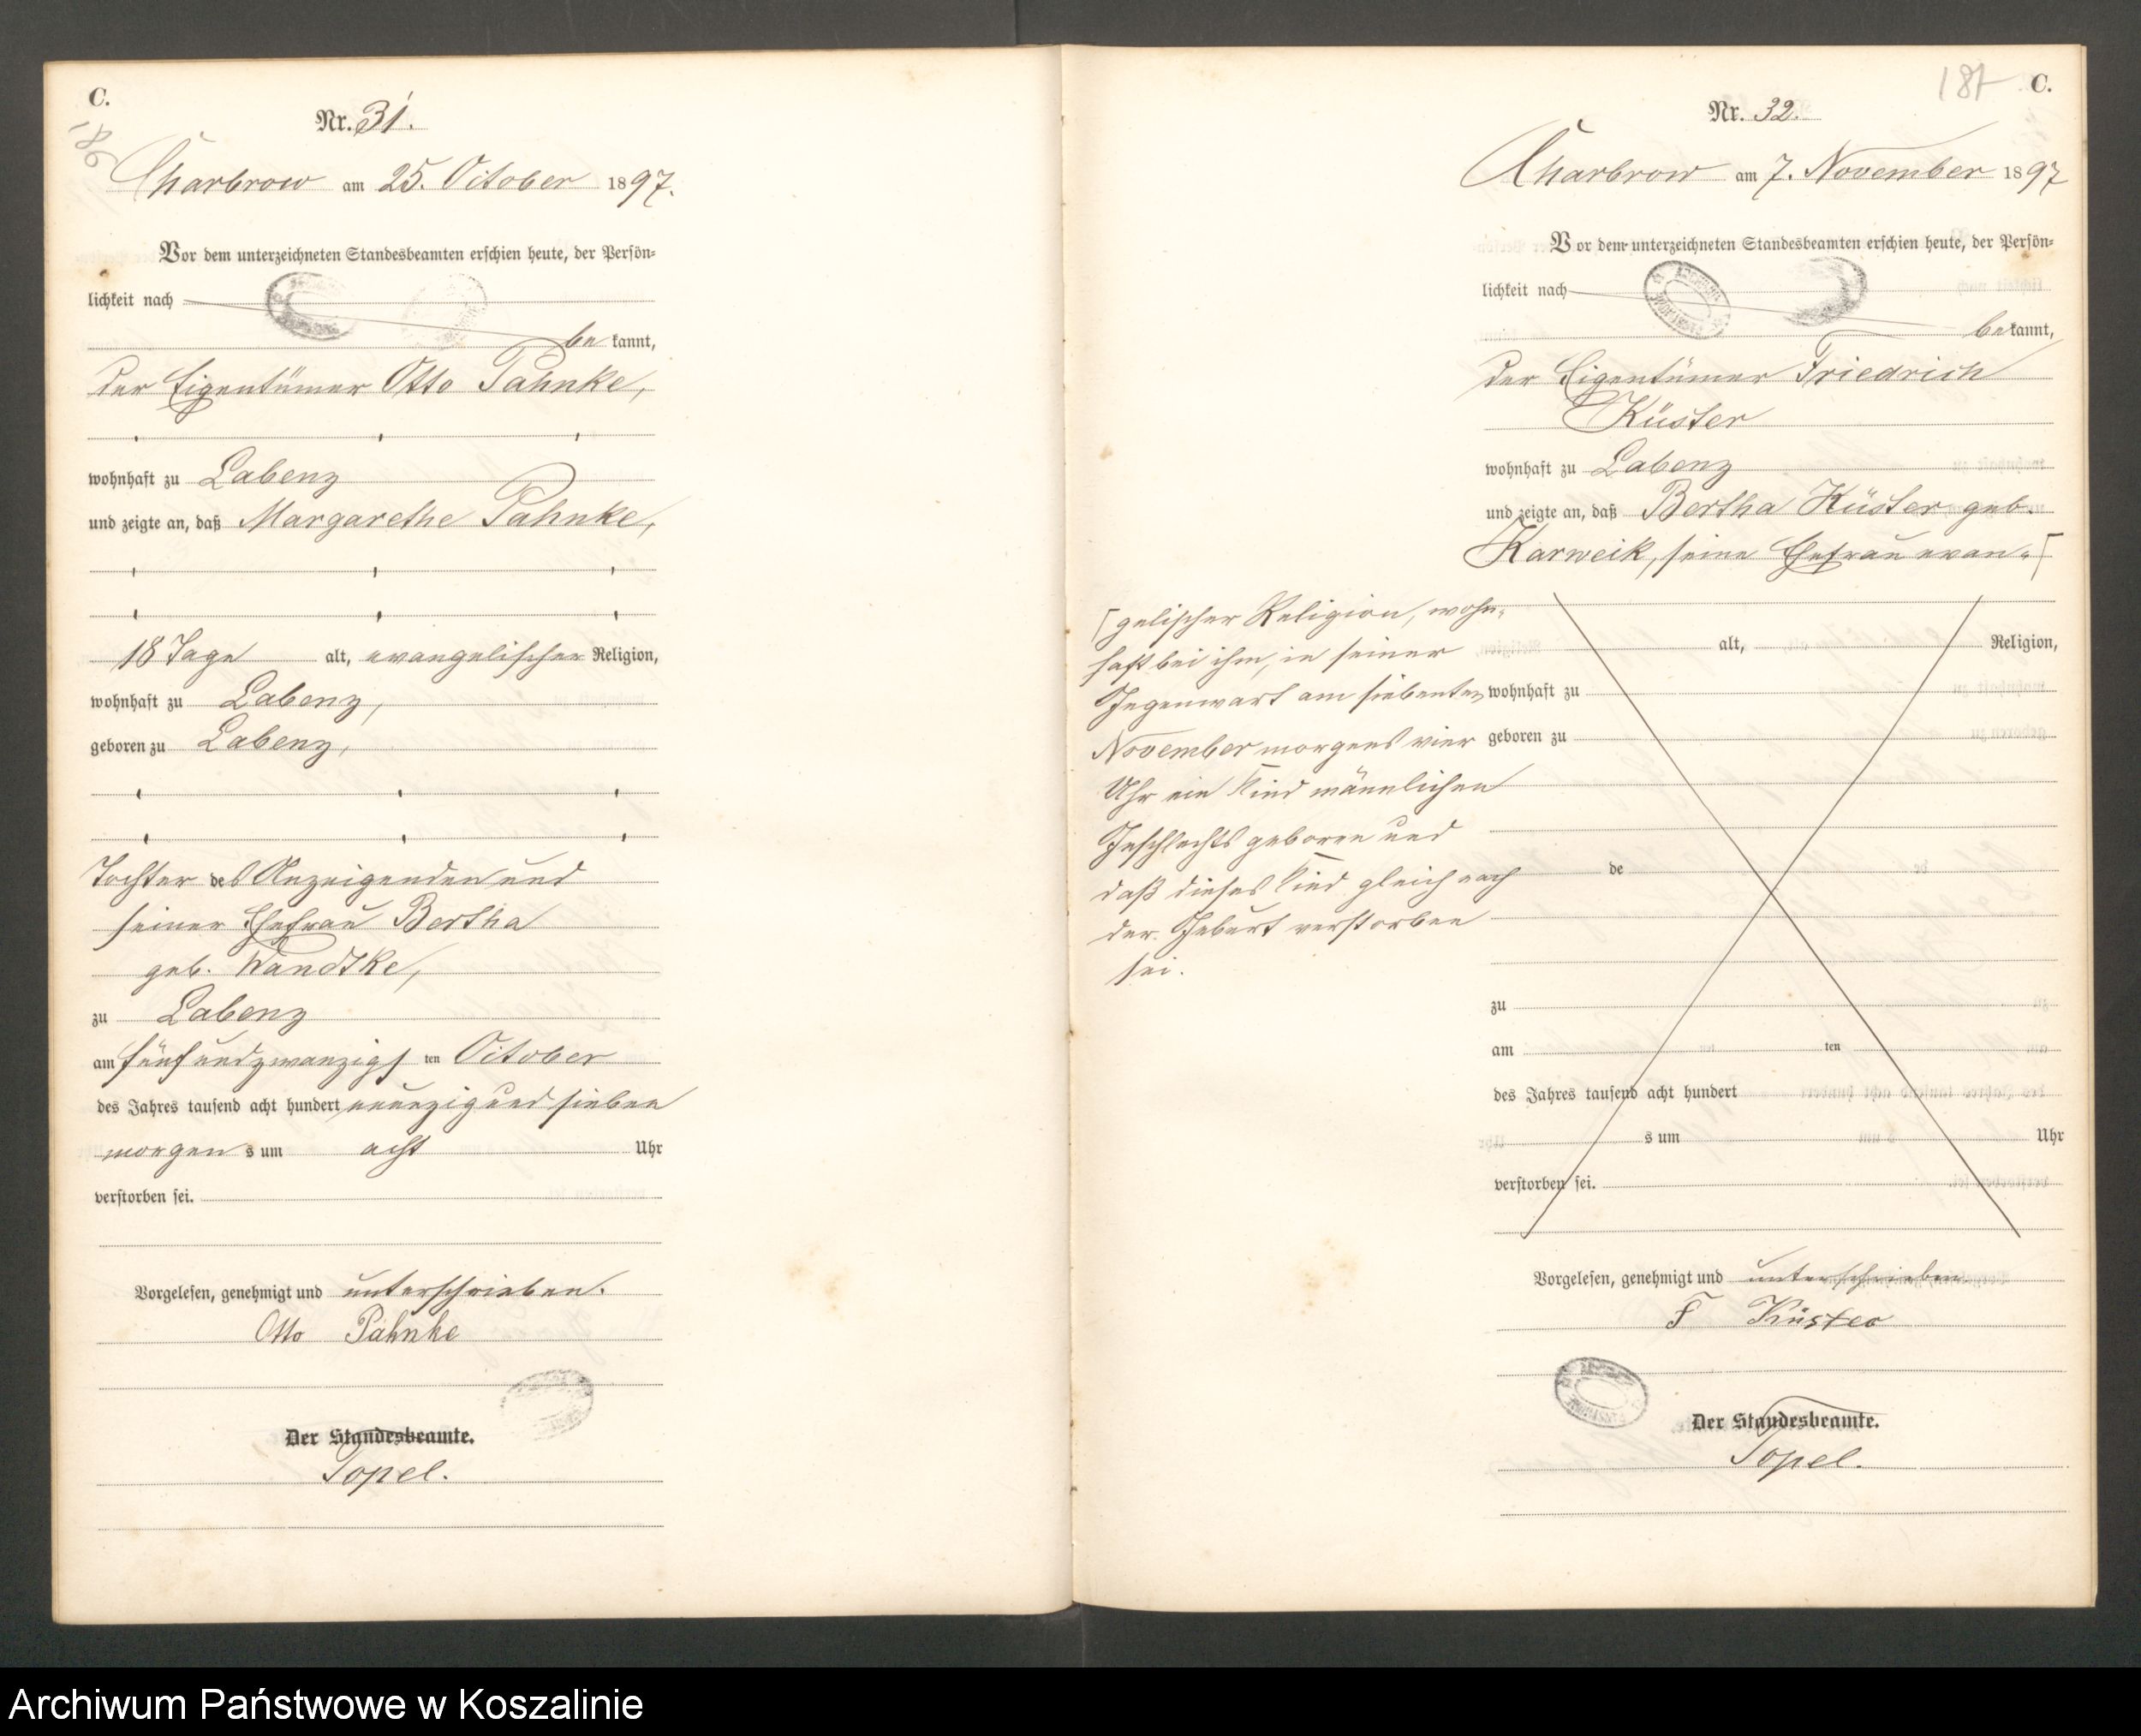 C.
186
Nr. 31.
Charbrow am 25. October 1897.
Vor dem unterzeichneten Standesbeamten erschien heute, der Persön-
lichkeit nach
be kannt,
der Eigentümer Otto Pahnke,
wohnhaft zu Labenz
und zeigte an, daß Margarethe Pahnke,
18 Tage alt, evangelischer Religion,
wohnhaft zu Labenz,
geboren zu Labenz,
Tochter des Anzeigenden und
seiner Ehefrau Bertha
geb. Wandtke,
zu Labenz
am fünf und zwanzigs ten October
des Jahres tausend acht hundert neunzig und sieben
morgen s um acht Uhr
verstorben sei.
Vorgelesen, genehmigt und unterschrieben.
Otto Pahnke
Der Standesbeamte.
Topel.
187 C.
Nr. 32.
Charbrow am 7. November 1897
Vor dem unterzeichneten Standesbeamten erschien heute, der Persön-
lichkeit nach
be kannt,
der Eigentümer Friedrich
Küster
wohnhaft zu Labenz
und zeigte an, daß Bertha Küster geb.
Karweik, seine Ehefrau evan-
gelischer Religion, wohn-
haft bei ihm, in seiner
Gegenwart am siebenten
November morgens vier
Uhr ein Kind männlichen
Geschlechts geboren und
daß dieses Kind gleich nach
der Geburt verstorben
sei.
alt, Religion,
wohnhaft zu
geboren zu
de
zu
am ten
des Jahres tausend acht hundert
s um Uhr
verstorben sei.
Vorgelesen, genehmigt und unterschrieben
F Küster
Der Standesbeamte.
Topel.
Archiwum Państwowe w Koszalinie